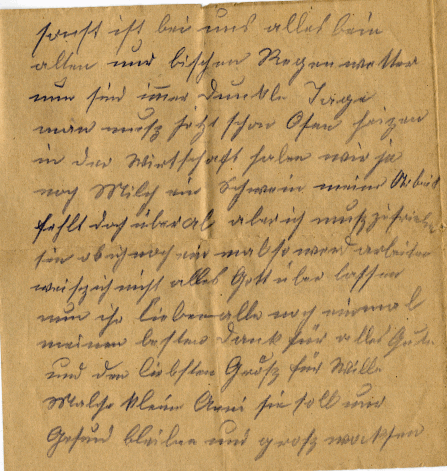 sonst ist bei uns alles beim
alten nur bischen Regenwetter
nun sind immer dunkle Tage
man musz jetzt schon Ofen heizen
in der Wirtschaft haben wir ja
noch Milch ein Schwein meine Arbeit
fehlt doch über al aber ich musz zufrieden
sein ob ich noch ein mal so werd arbeiten
weisz ich nicht alles Gott über lassen
nun ihr Lieben alle noch einmal
meinen besten Dank für alles Gute
und den liebsten Grusz für Willi
kleine Anni sie soll nur
Gesund bleiben und grosz wacksen